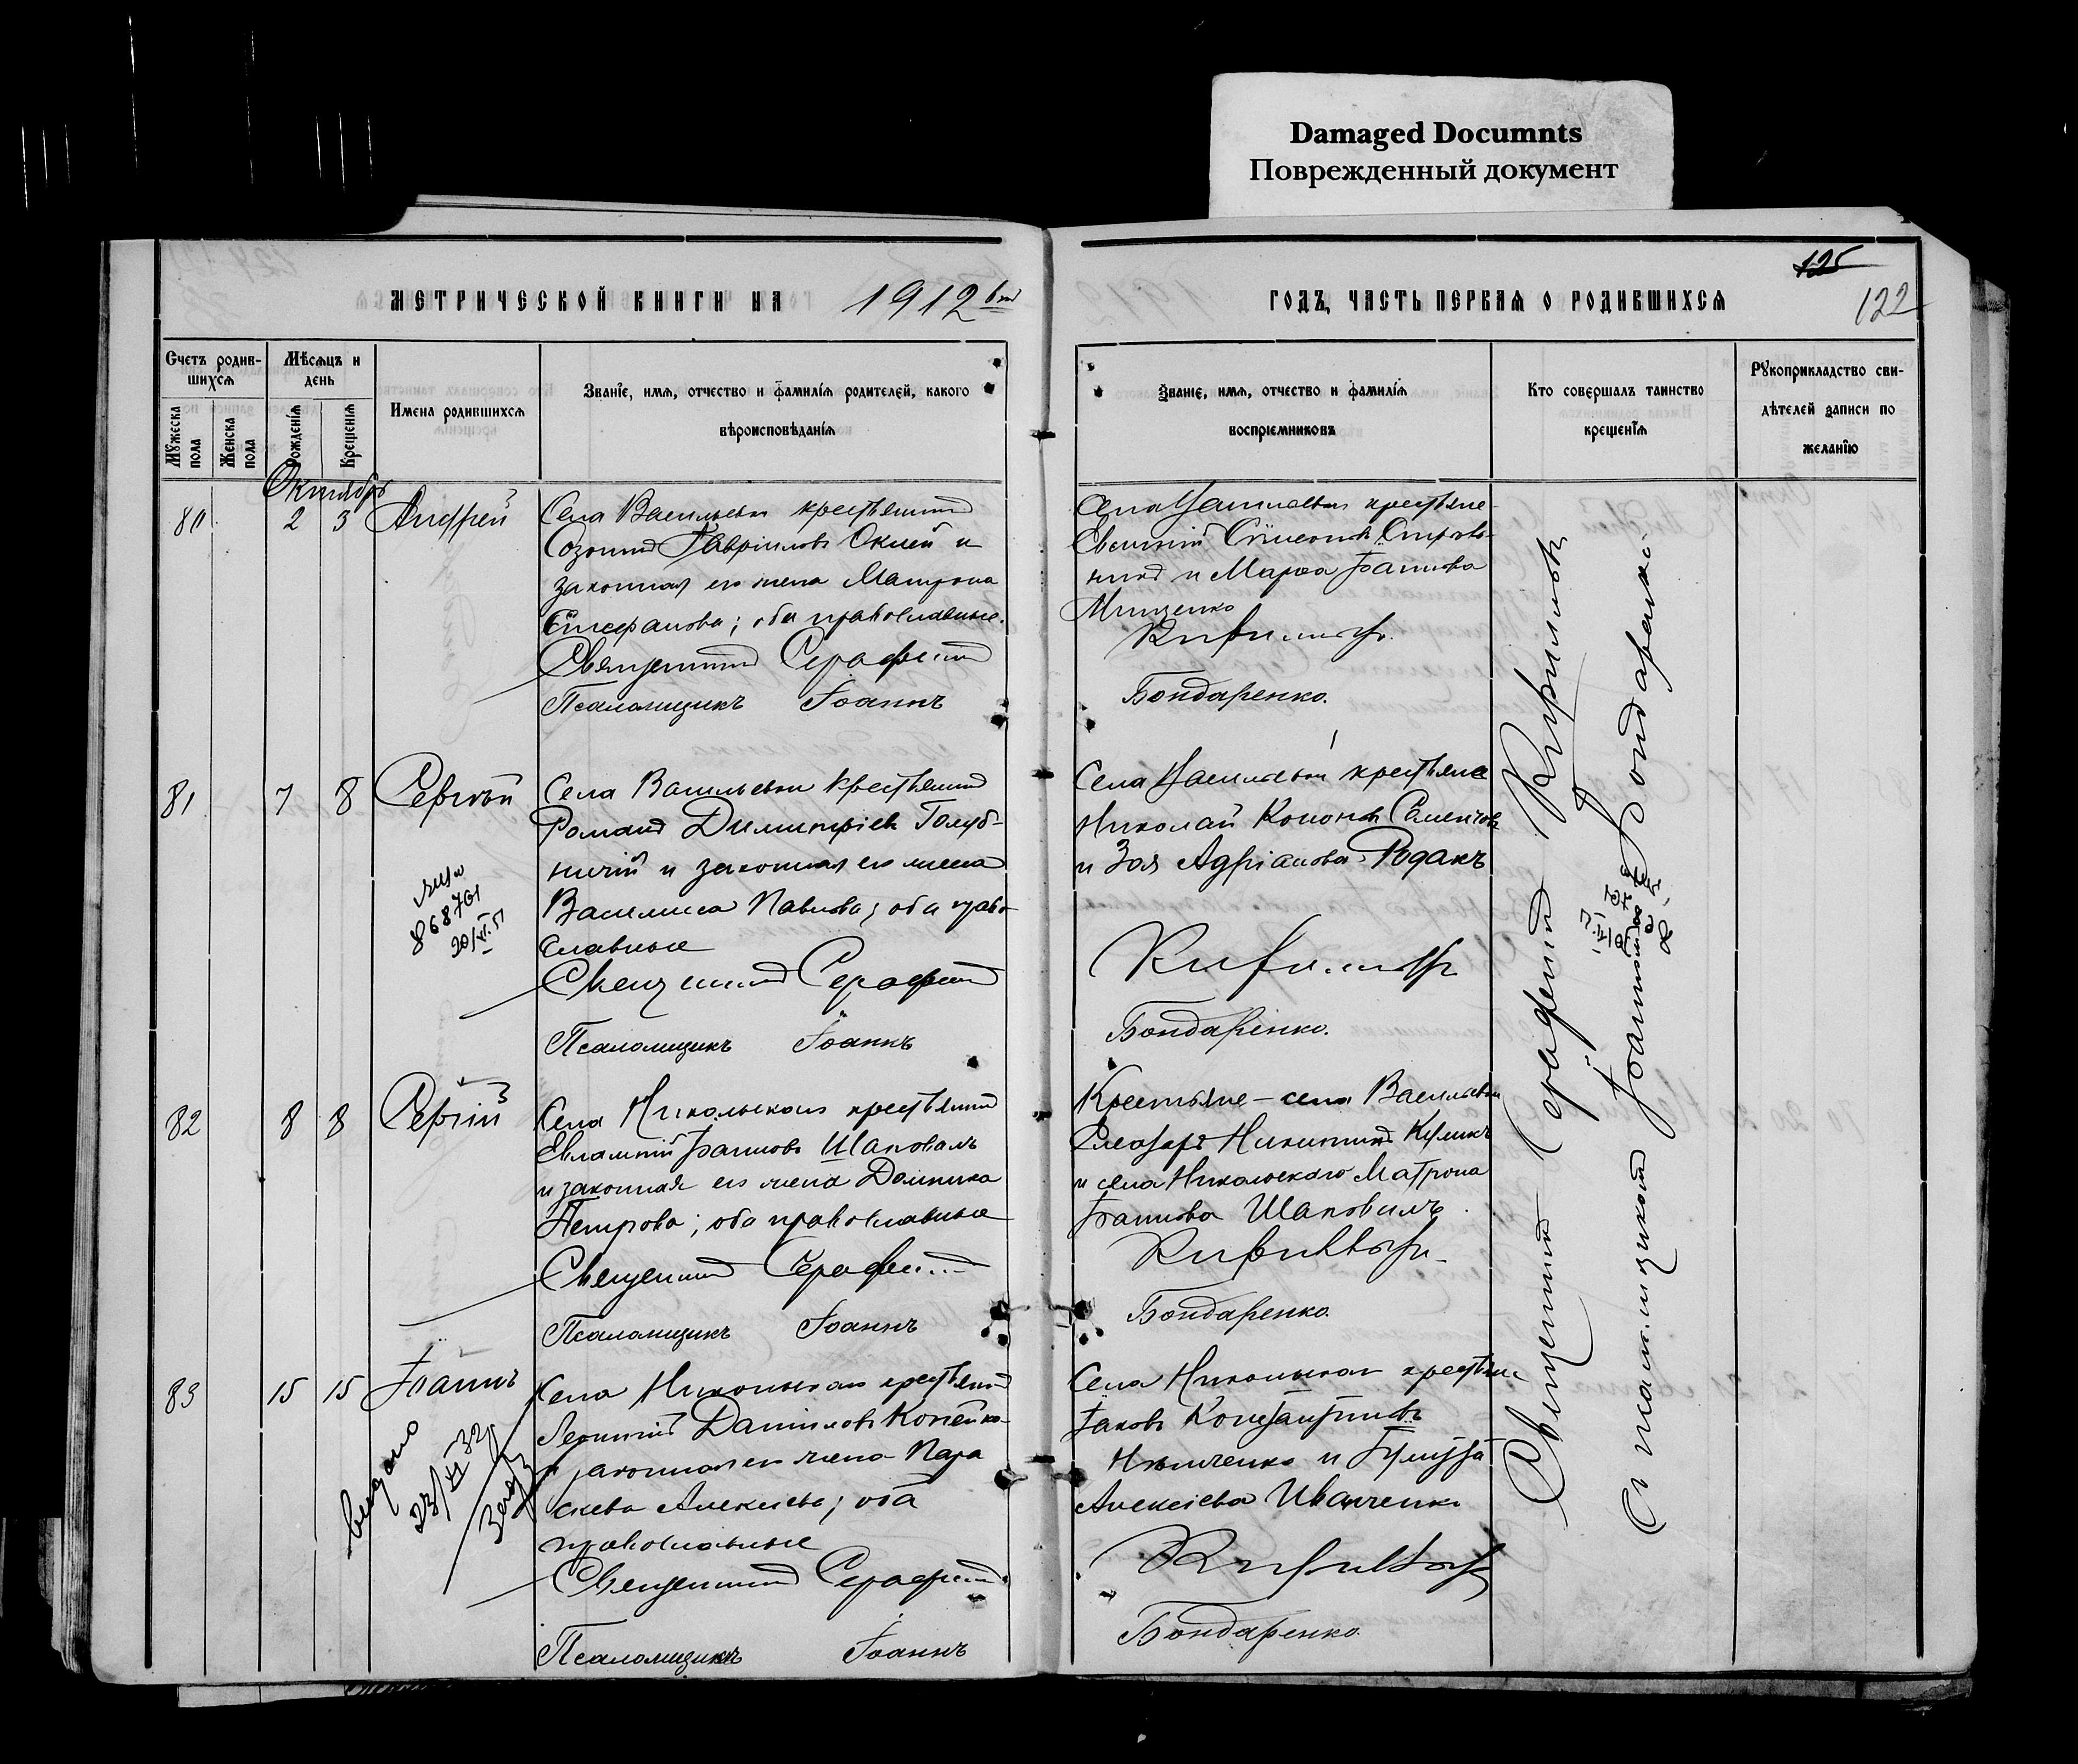 Damaged Documnts
Поврежденный документ
МЕТРИЧЕСКОЙ КНИГИ НА 1912
ГОДЪ, ЧАСТЬ ПЕРВАЯ О РОДИВШИХСЯ
125
122
Счетъ родив-
шихся
Мѣсяцъ и
день
Мужеска пола
Женска пола
Рожденія
Крещенія
Имена родившихся
Званіе, имя, отчество и фамилія родителей, какого
вѣроисповѣданія
Званіе, имя, отчество и фамилія
воспріемниковъ
Кто совершалъ таинство
крещенія
Рукоприкладство сви-
дѣтелей записи по
желанію
Октябрь
80 2 3 Андрей
Села Васильевки крестьянинъ
Созонтъ Гавріиловъ и
законная его жена Матрона
Епифанова; оба православные.
Священникъ Серафимъ
Псаломщикъ Іоаннъ
Села крестьяне
Евгеній Симеоновъ
и Марѳа Іоаннова
Мищенко
Кириловъ
Бондаренко.
81 7 8 Сергѣй
868701
Села Васильевки крестьянинъ
Романъ Димитріевъ Голуб-
ничій и законная его жена
Василиса Павлова; оба право-
славные
Священникъ Серафимъ
Псаломщикъ Іоаннъ
Села Васильевки крестьяне
Николай Кононовъ
и Зоя Адріанова Родакъ
Кириловъ
Бондаренко.
82 8 8 Сергій
Села Никольскаго крестьянинъ
Евлампій Іоанновъ Шаповалъ
и законная его жена Домника
Петрова; оба православные
Священникъ Серафимъ
Псаломщикъ Іоаннъ
Крестьяне - села Васильевки
Елеазаръ Никитинъ Куликъ
и села Никольскаго Матрона
Іоаннова Шаповалъ.
Кириловъ
Бондаренко.
83 15 15 Іоаннъ
выдано
23/XI 32
Села Никольскаго крестьянинъ
Леонтій Даніиловъ
и законная его жена Пара
скева Алексіева; оба
православные
Священникъ Серафимъ
Псаломщикъ Іоаннъ
Села Никольскаго крестьяне
Іаковъ Константиновъ
Ильченко и
Алексіева Иванченко
Кириловъ
Бондаренко
Священникъ Серафимъ Кириловъ
Съ псаломщикомъ Іоанномъ Бондаренко.